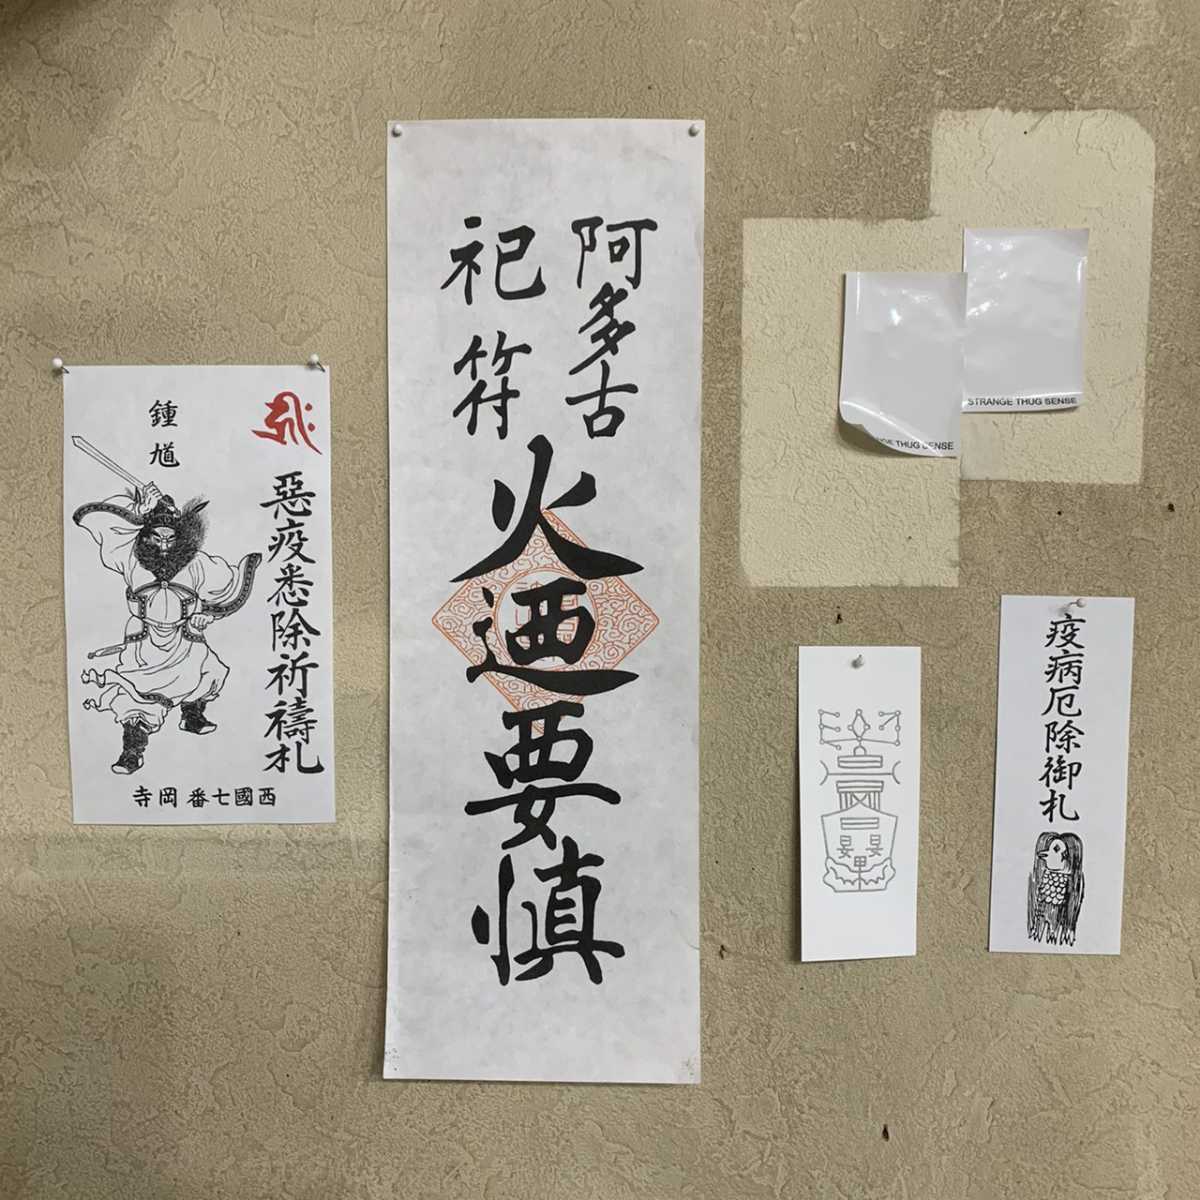 惡疫悉除祈禱札
鍾馗
西國七番 岡寺
阿多古
祀符
火迺要慎
STRANGE THUG SENSE
THUG SENSE
疫病厄除御札